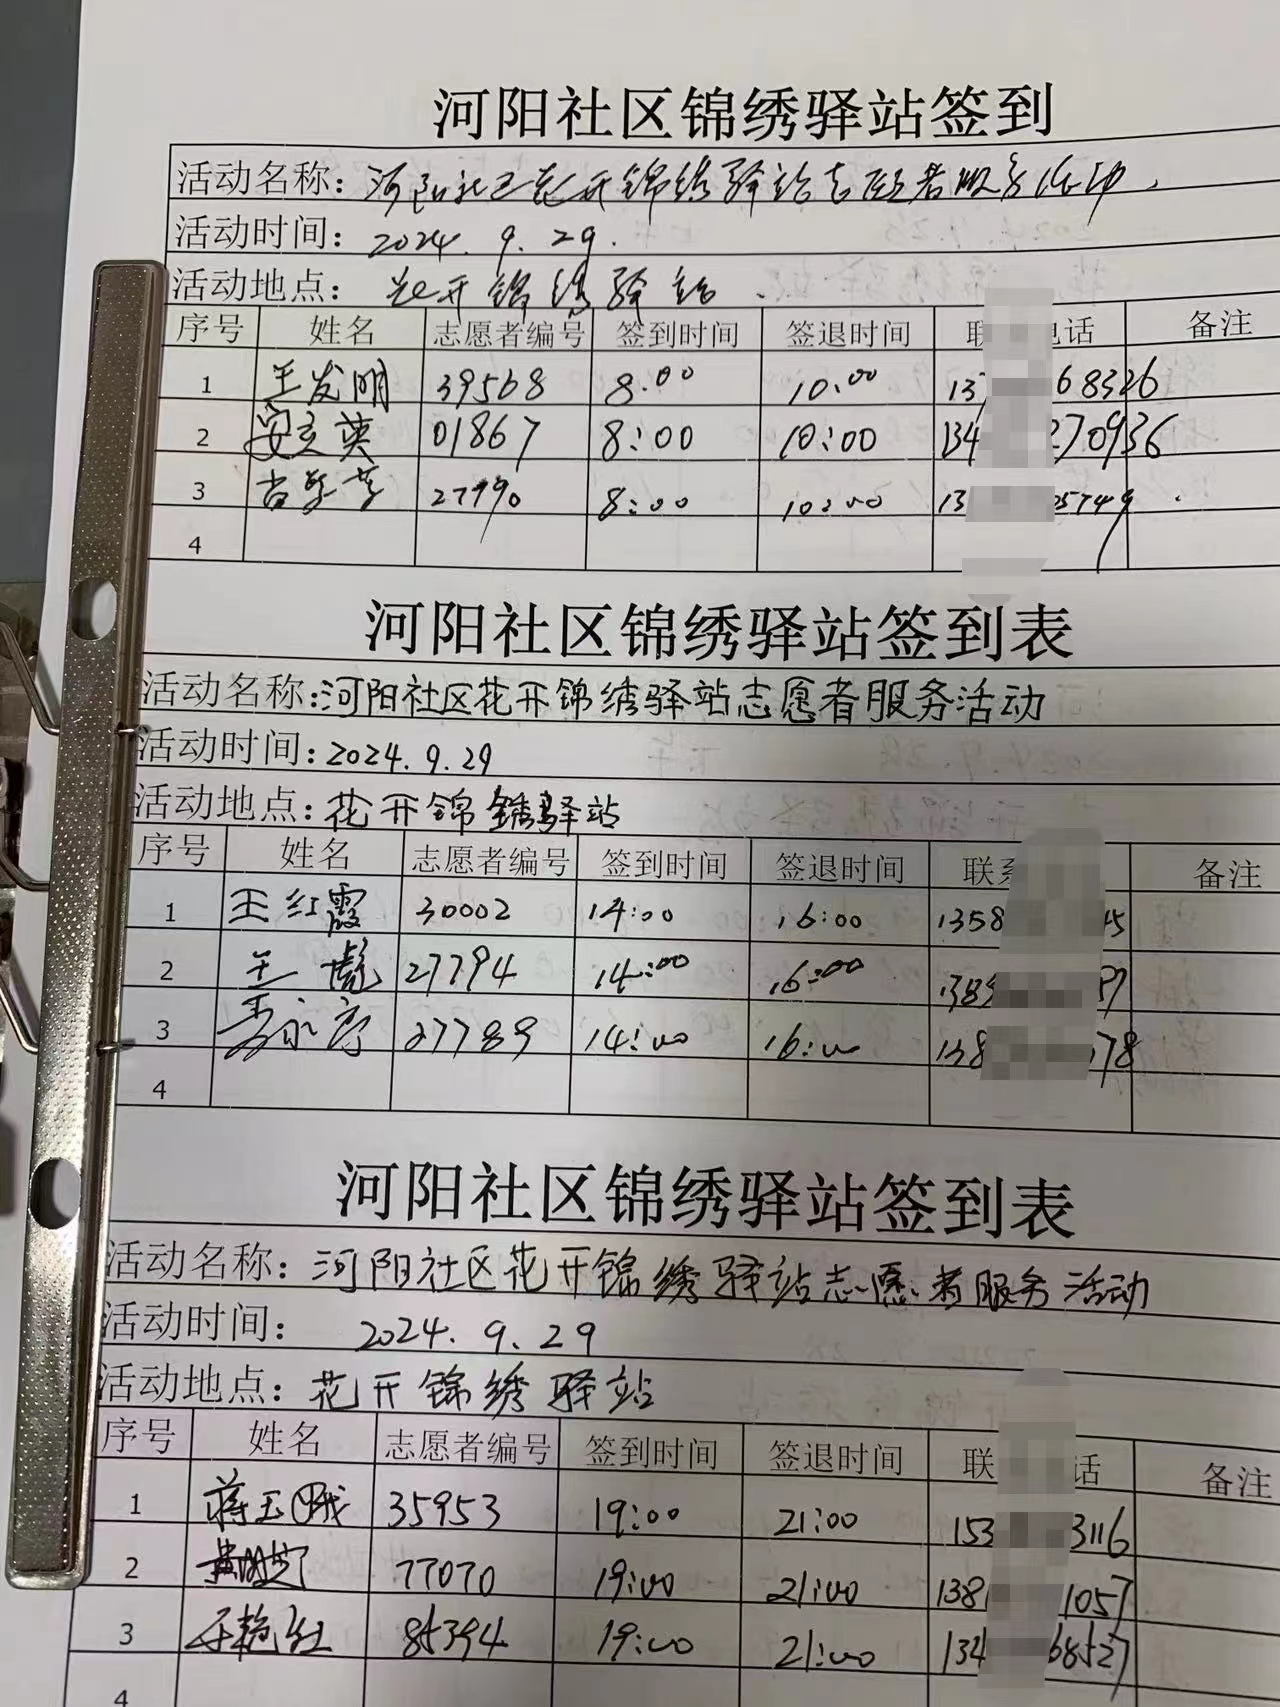 河阳社区锦绣驿站签到
活动名称：河阳社区花开锦绣驿站志愿者服务活动.
活动时间：2024.9.29.
活动地点：花开锦绣驿站.
序号 姓名 志愿者编号 签到时间 签退时间 联 电话 备注
1 王发明 39568 8:00 10:00 13 68326
2 安文英 01867 8:00 10:00 134 270936
3 27790 8:00 10:00 13 5749
4
河阳社区锦绣驿站签到表
活动名称：河阳社区花开锦绣驿站志愿者服务活动
活动时间：2024.9.29
活动地点：花开锦绣驿站
序号 姓名 志愿者编号 签到时间 签退时间 联系 备注
1 王红霞 30002 14:00 16:00 1358 45
2 王彪 27794 14:00 16:00 138
3 27789 14:00 16:00 138 178
4
河阳社区锦绣驿站签到表
活动名称：河阳社区花开锦绣驿站志愿者服务活动
活动时间：2024.9.29
活动地点：花开锦绣驿站
序号 姓名 志愿者编号 签到时间 签退时间 联 话 备注
1 蒋玉娥 35953 19:00 21:00 153 3116
2 77070 19:00 21:00 138 1057
3 85394 19:00 21:00 134 68527
4